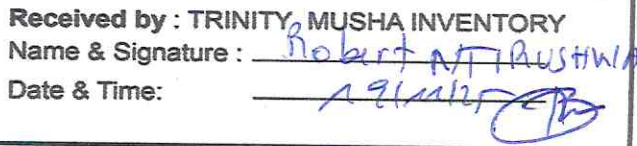 Received by : TRINITY, MUSHA INVENTORY
Name & Signature : Robert NTIRUSHWA
Date & Time: 19/11/25